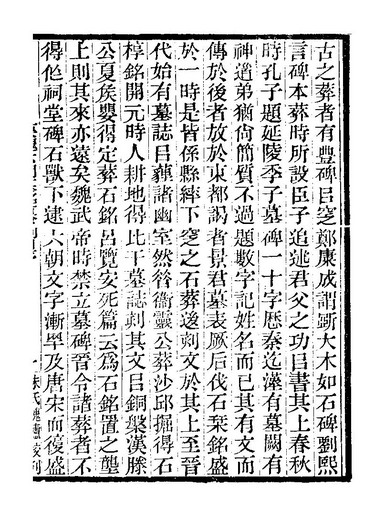 古之葬者有豐碑㠯窆鄭康成謂斲大木如石碑劉熙
言碑本葬時所設臣子追述君父之功㠯書其上春秋
時孔子題延陵季子墓碑一十字厯秦迄漢有墓闕有
神道弟猶尚簡質不過題數字記姓名而已其有文而
傳於後者放於東都謁者景君墓表厥后伐石琹銘盛
於一時是皆係縣繂下窆之石葬後刻文於其上至晉
代始有墓誌㠯薶諸幽室然昝衞靈公葬沙邱掘得石
椁銘開元時人耕地得比干墓誌刻其文㠯銅槃漢滕
公夏矦嬰得定葬石銘呂覽安死篇云爲石銘置之壟
上則其來亦遠矣魏武帝時禁立墓碑晉令諸葬者不
得作祠堂碑石獸下逮六朝文字漸畢及唐宋而復盛
一 朱氏槐廬校刊